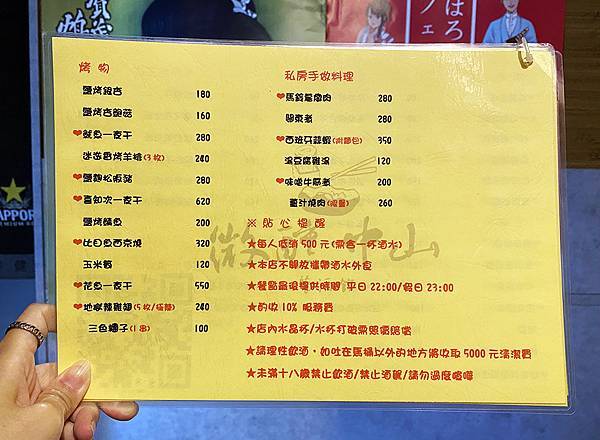 烤物
鹽烤銀杏 180
鹽烤杏鮑菇 160
❤魷魚一夜干 280
迷迭香烤羊排(3枚) 240
❤鹽麴松阪豬 280
❤喜知次一夜干 620
鹽烤鯖魚 200
❤比目魚西京燒 320
玉米筍 120
❤花魚一夜干 550
❤地獄辣雞翅(5枚/極辣) 240
三色糰子(1串) 100
私房手做料理
❤馬鈴薯燉肉 280
關東煮 280
❤西班牙蒜蝦(附麵包) 350
湯豆腐雞湯 120
❤味噌牛筋煮 200
薑汁燒肉(限量) 260
※貼心提醒
★每人低消500元(需含一杯酒水)
★本店不開放攜帶酒水外食
★餐點最後提供時間 平日22:00/假日23:00
★酌收10% 服務費
★店內水晶杯/水杯打破需照價賠償
★請理性飲酒,如吐在馬桶以外的地方將收取5000元清潔費
★未滿十八歲禁止飲酒/禁止酒駕/請勿過度喧嘩
微醺中山